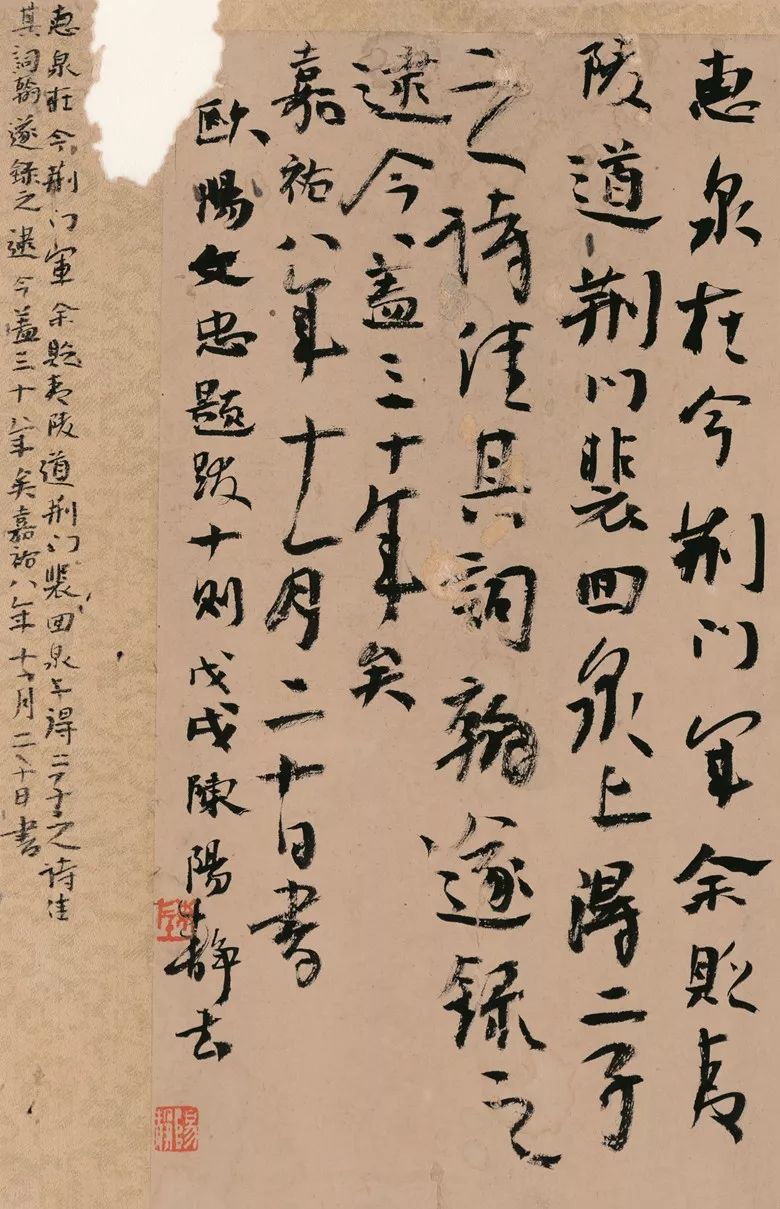 惠泉在今荆門軍余貶夷
陵道荆門裴回泉上得二子
之詩佳其詞翰遂録之
逮今蓋三十年矣
嘉祐八年十一月二十日書
歐陽文忠題跋十則戊戌陳陽靜
惠泉在今荆门軍余貶夷陵道荆门裴回泉上得二子之詩佳
其詞翰遂録之逮今蓋三十年矣嘉祐八年十一月二十日書